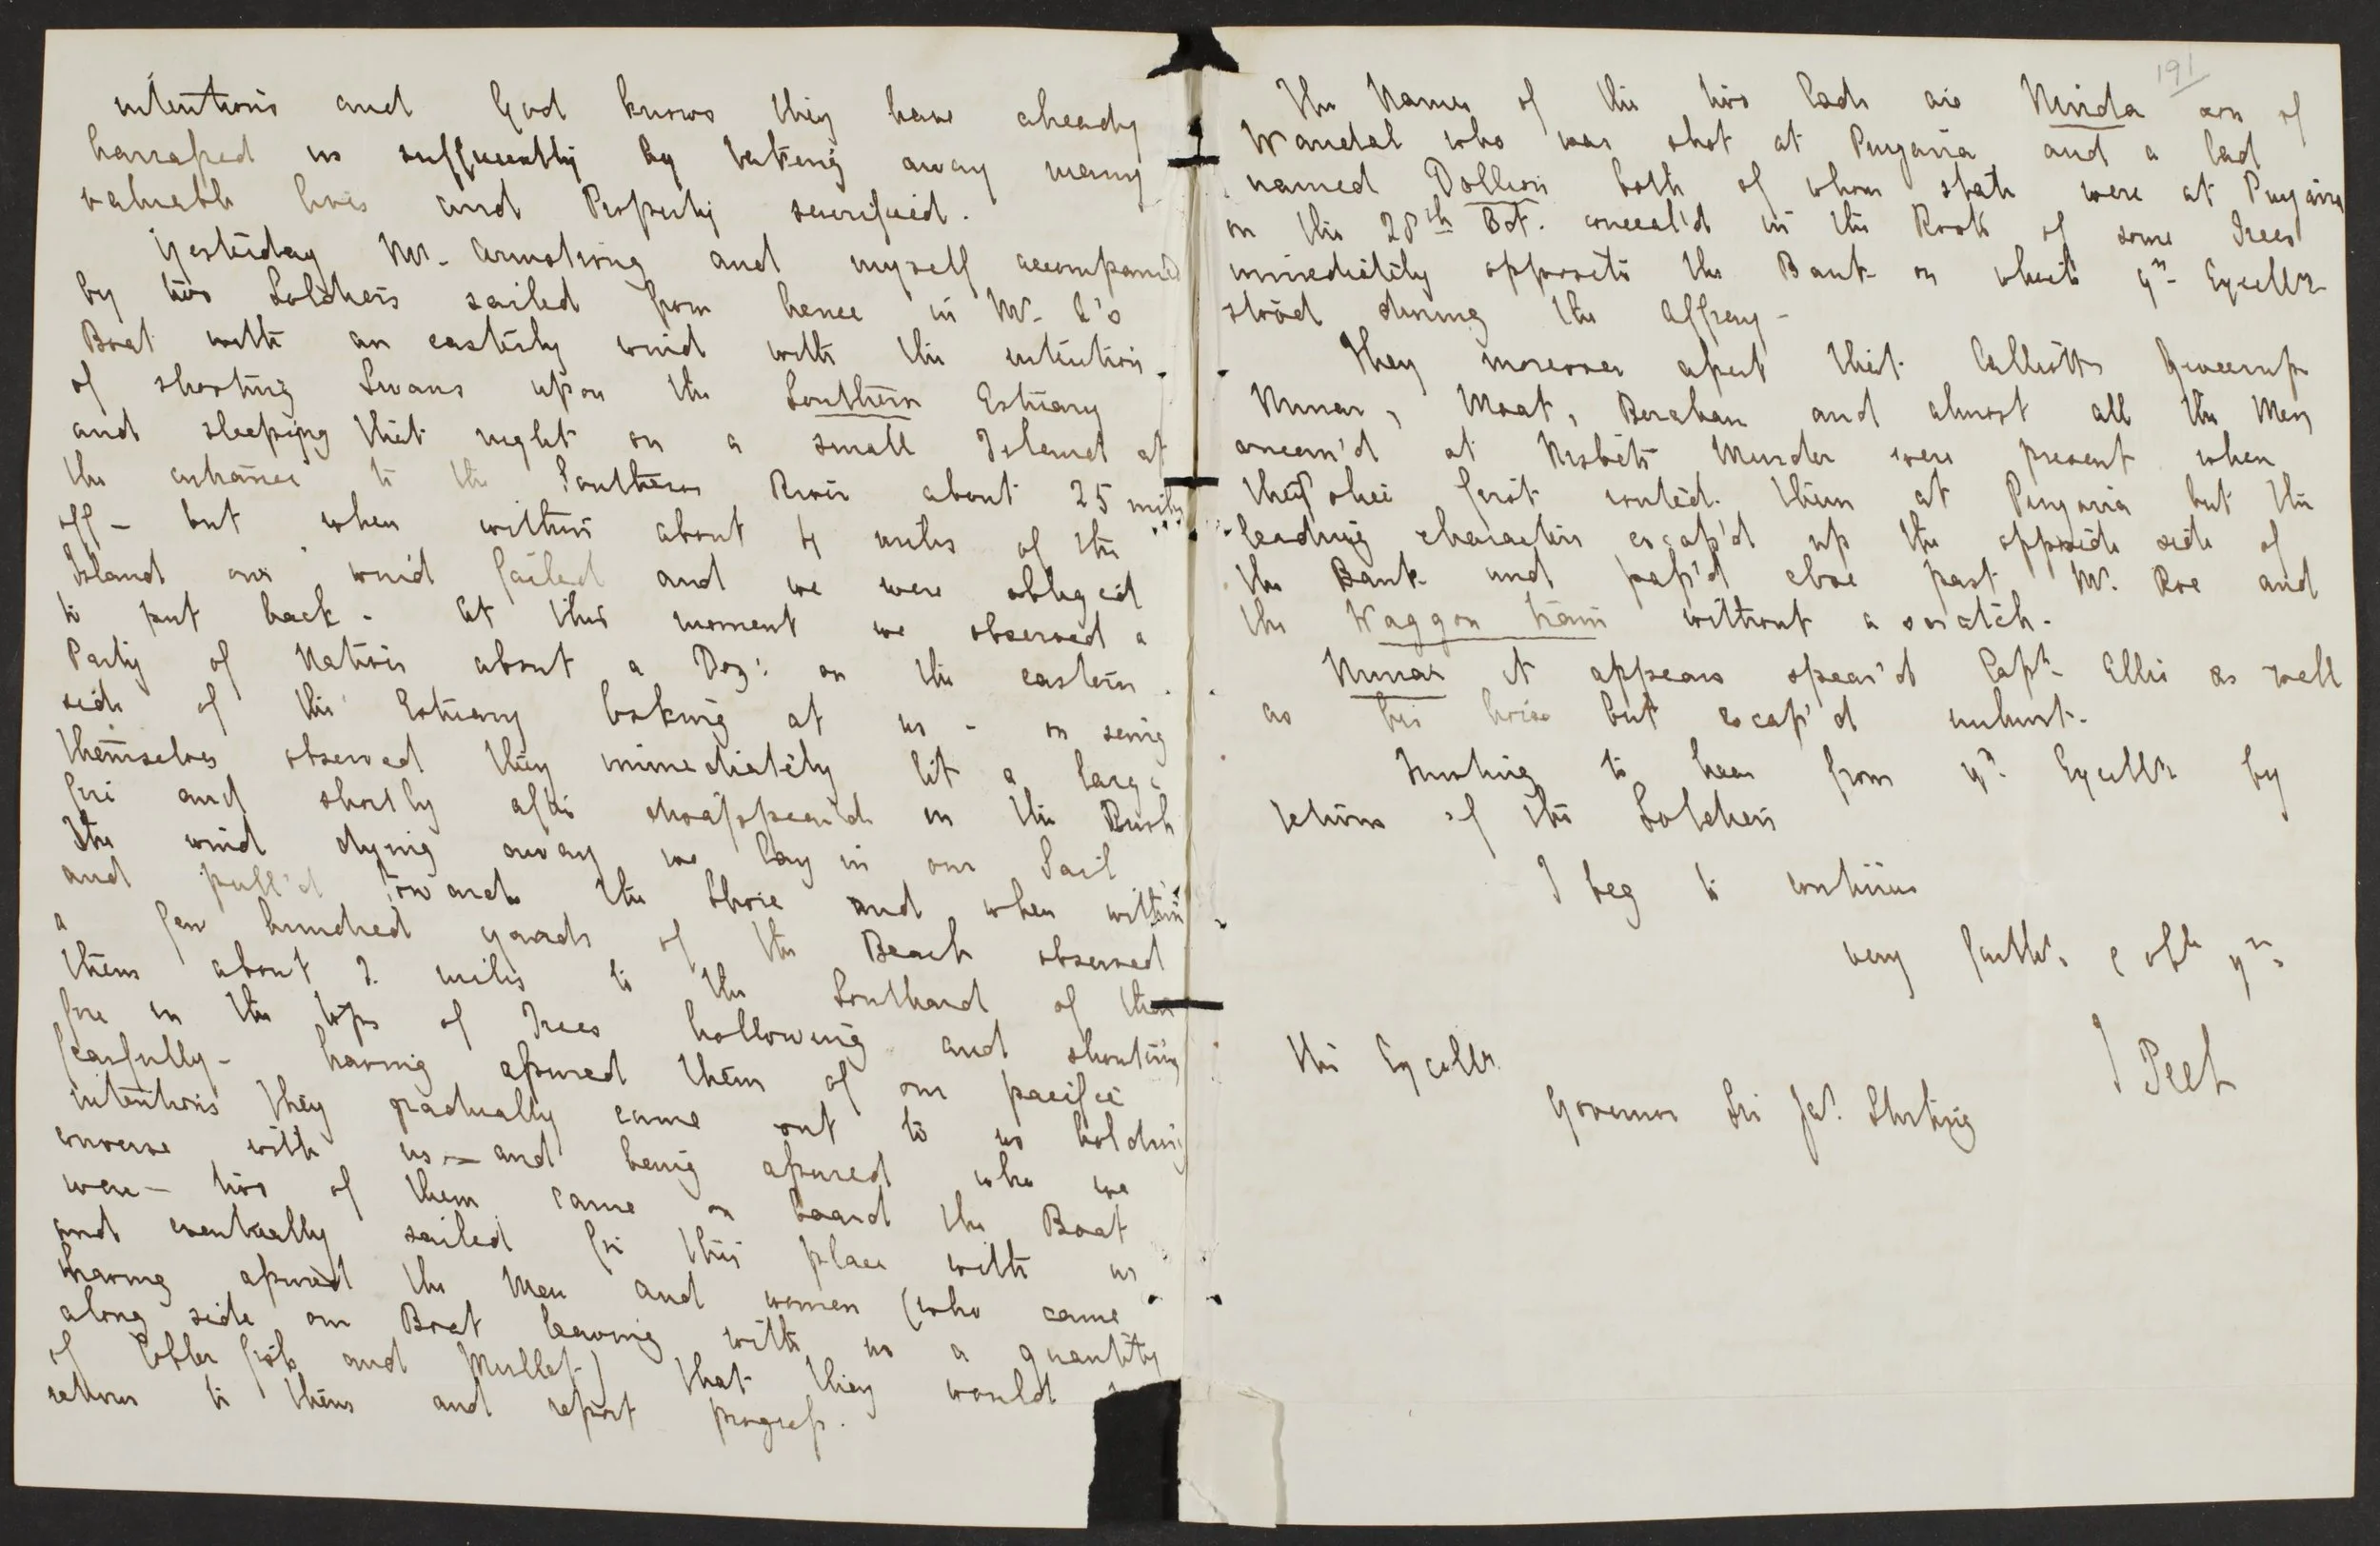 intentions and God knows they have already
harrassed us sufficiently by taking away many
valuable lives and Property sacrificed.
Yesterday Mr. Armstrong and myself accompanied
by two Soldiers sailed from hence in Mr. A's
Boat with an easterly wind with the intention
of shooting Swans upon the Southern Estuary
and sleeping that night on a small Island at
the entrance to the Southern River about 25 miles
off - but when within about 4 miles of the
Island our wind failed and we were obliged
to put back - At this moment we observed a
Party of Natives about a Doz: on the eastern
side of the Estuary looking at us - on seeing
themselves observed they immediately lit a large
fire and shortly after disappear'd in the Bush
The wind dying away we lay in our Sail
and pull'd towards the Shore and when within
a few hundred yards of the Beach observed
them about 2 miles to the Southard of their
fire in the tops of Trees hollowing and shouting
fearfully - having assured them of our pacific
intentions they gradually came out to us holding
converse with us - and being assured who we
were - two of them came on board the Boat
and eventually sailed for this place with us
having assured the Men and women (who came
along side our Boat leaving with us a quantity
of Cobler fish and Mullet) that they would
return to them and report progress.
191
The Names of the two lads are Ninda son of
Wandal who was shot at Pinyarra and a lad
named Dollion both of whom state were at Pinyarra
on the 28th Oct. conceal'd in the Roots of some Trees
immediately opposite the Bank on which yr Excellr
stood during the affray -
They moreover assert that Calliott Gweenup
Nunar, Moat, Beraban and almost all the Men
concern'd at Nesbits Murder were present when
they were first routed them at Pinyarra but the
leading characters escap'd up the opposite side of
the Bank and pass'd close past Mr. Roe and
the Waggon train without a scratch.
Nunar it appears spear'd Capt. Ellis as well
as his horse but escap'd unhurt.
Trusting to hear from yr. Excellr by
return of the Soldiers
I beg to continue
very faithl. & obt yrs
T Peel
His Excellr.
Governor Sir Jas. Stirling